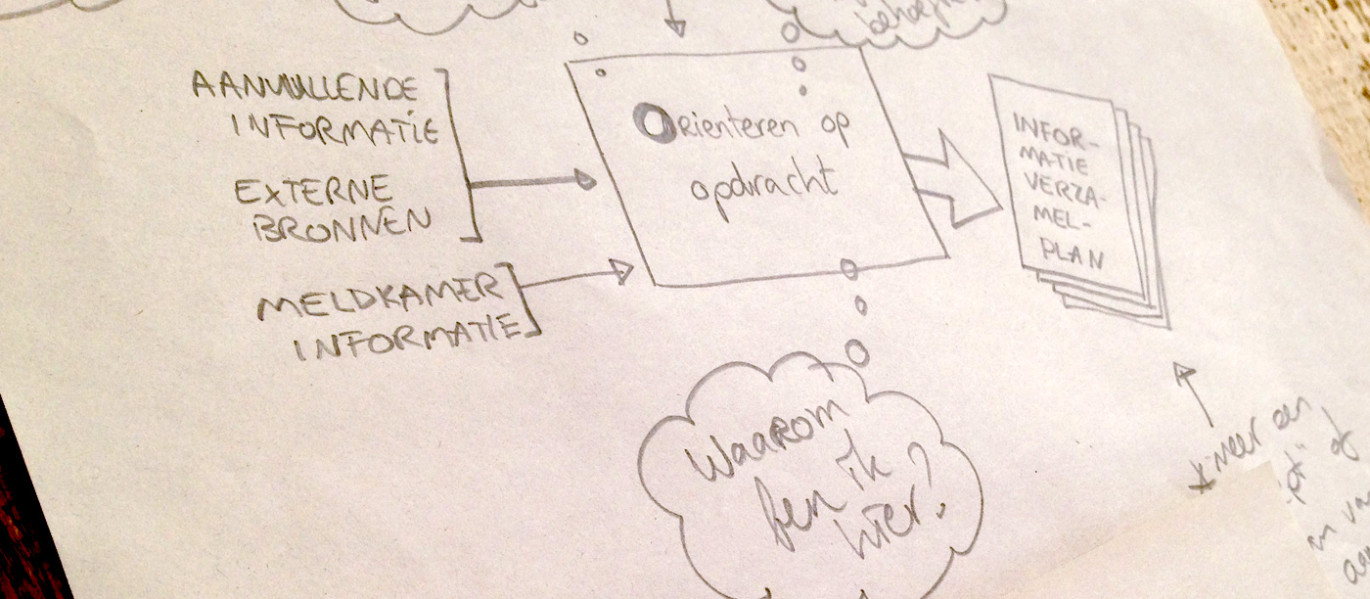 behoef
AANVULLENDE
INFORMATIE
EXTERNE
BRONNEN
MELDKAMER
INFORMATIE
Orienteren op
opdracht
INFOR-
MATIE
VERZA-
MEL-
PLAN
Waarom
ben ik
hier?
meer een
of